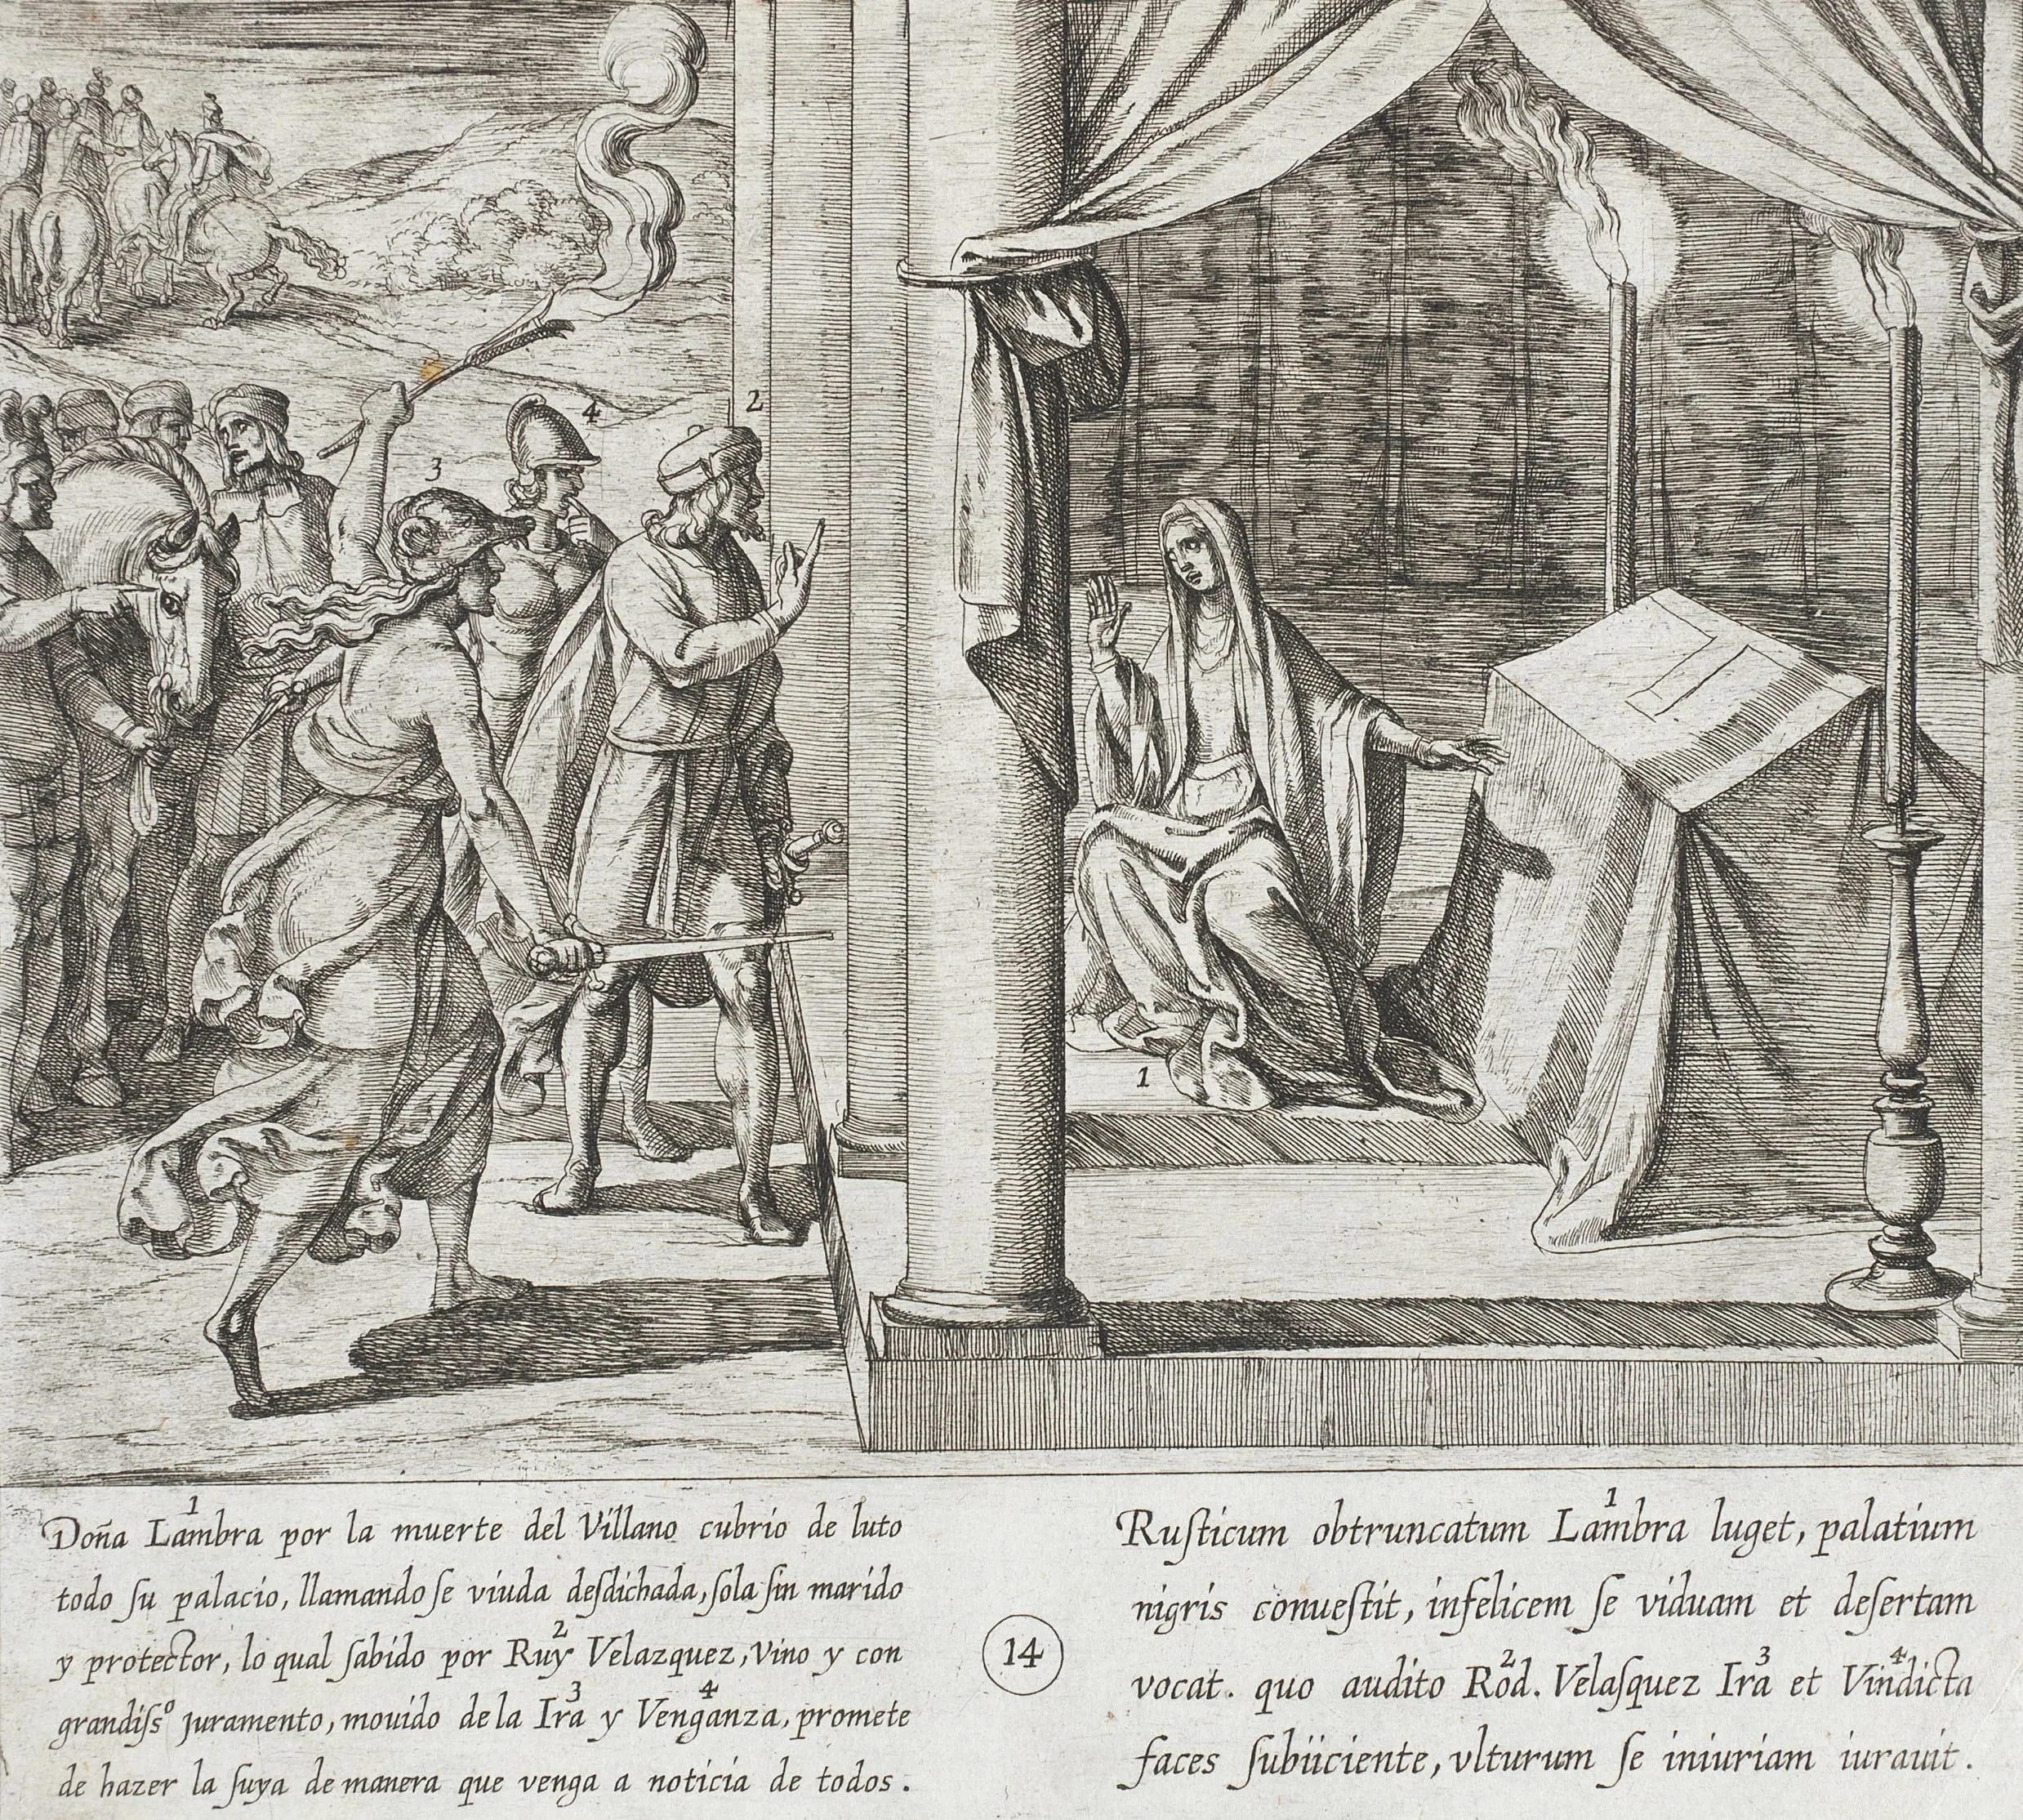 4
2
3
1
1
Doña Lambra por la muerte del Villano cubrio de luto
todo ſu palacio, llamando ſe viuda deſdichada, ſola ſin marido
2
y protector, lo qual ſabido por Ruy Velazquez, Vino y con
3 4
grandiſsº juramento, mouido de la Ira y Venganza, promete
de hazer la ſuya de manera que venga a noticia de todos.
14
1
Ruſticum obtruncatum Lambra luget, palatium
nigris conueſtit, infelicem ſe viduam et deſertam
2 3 4
vocat. quo audito Rod. Velaſquez Ira et Vindicta
faces ſubiiciente, vlturum ſe iniuriam iurauit.